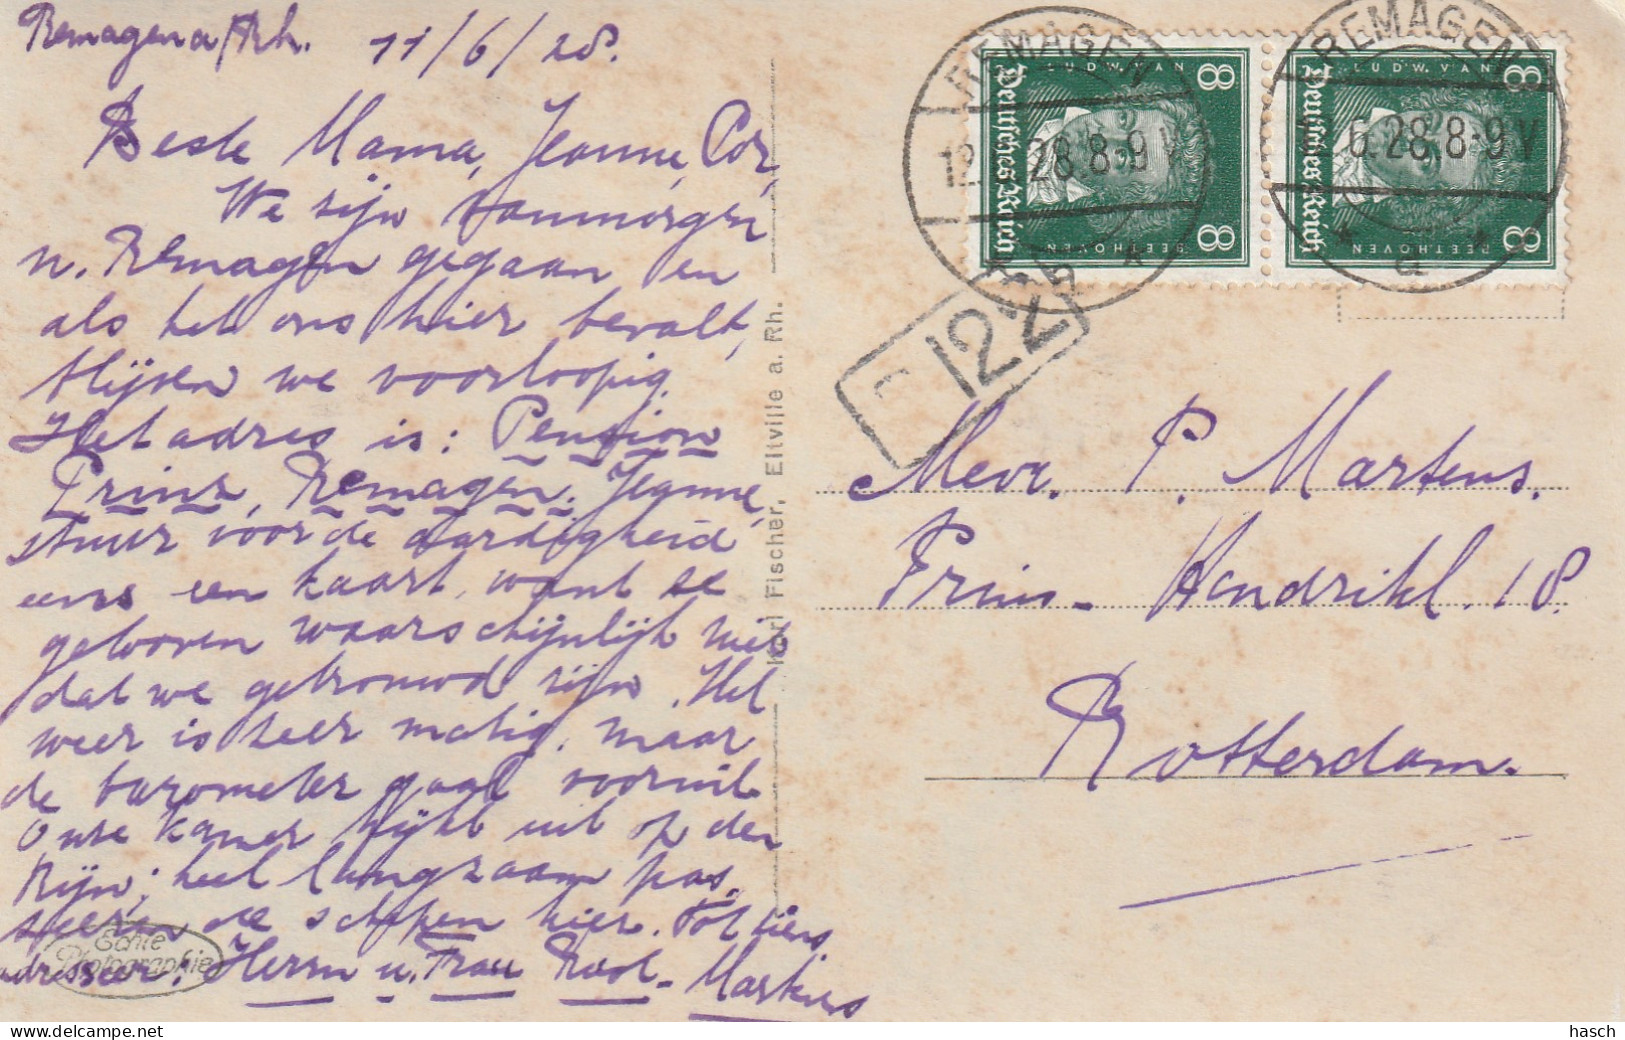 Remagen a/Rh. 11/6/28.
Beste Mama, Jeanne, Cor,
We zijn vanmorgen
n. Remagen gegaan en
als het ons hier bevalt,
blijven we voorloopig.
Het adres is: Pension
Prinz, Remagen. Jeanne,
stuur voor de aardigheid
eens een kaart, want ze
gelooven waarschijnlijk niet
dat we getrouwd zijn. Het
weer is zeer matig, maar
de barometer gaat vooruit.
Onze kamer kijkt uit op den
Rijn; heel langzaam pas-
seeren de schepen hier. Tot ziens
adresseer: Herrn u. Frau
Martens
Echte
Photographie
Karl Fischer, Eltville a. Rh.
REMAGEN
12. 28. 8-9 V
REMAGEN
6.28. 8-9 V
a
8 LUDW. VAN
Deutsches Reich
BEETHOVEN 8
8 LUDW. VAN
Deutsches Reich
BEETHOVEN 8
122
Mevr. P. Martens.
Prins-Hendrikk. 18.
Rotterdam.